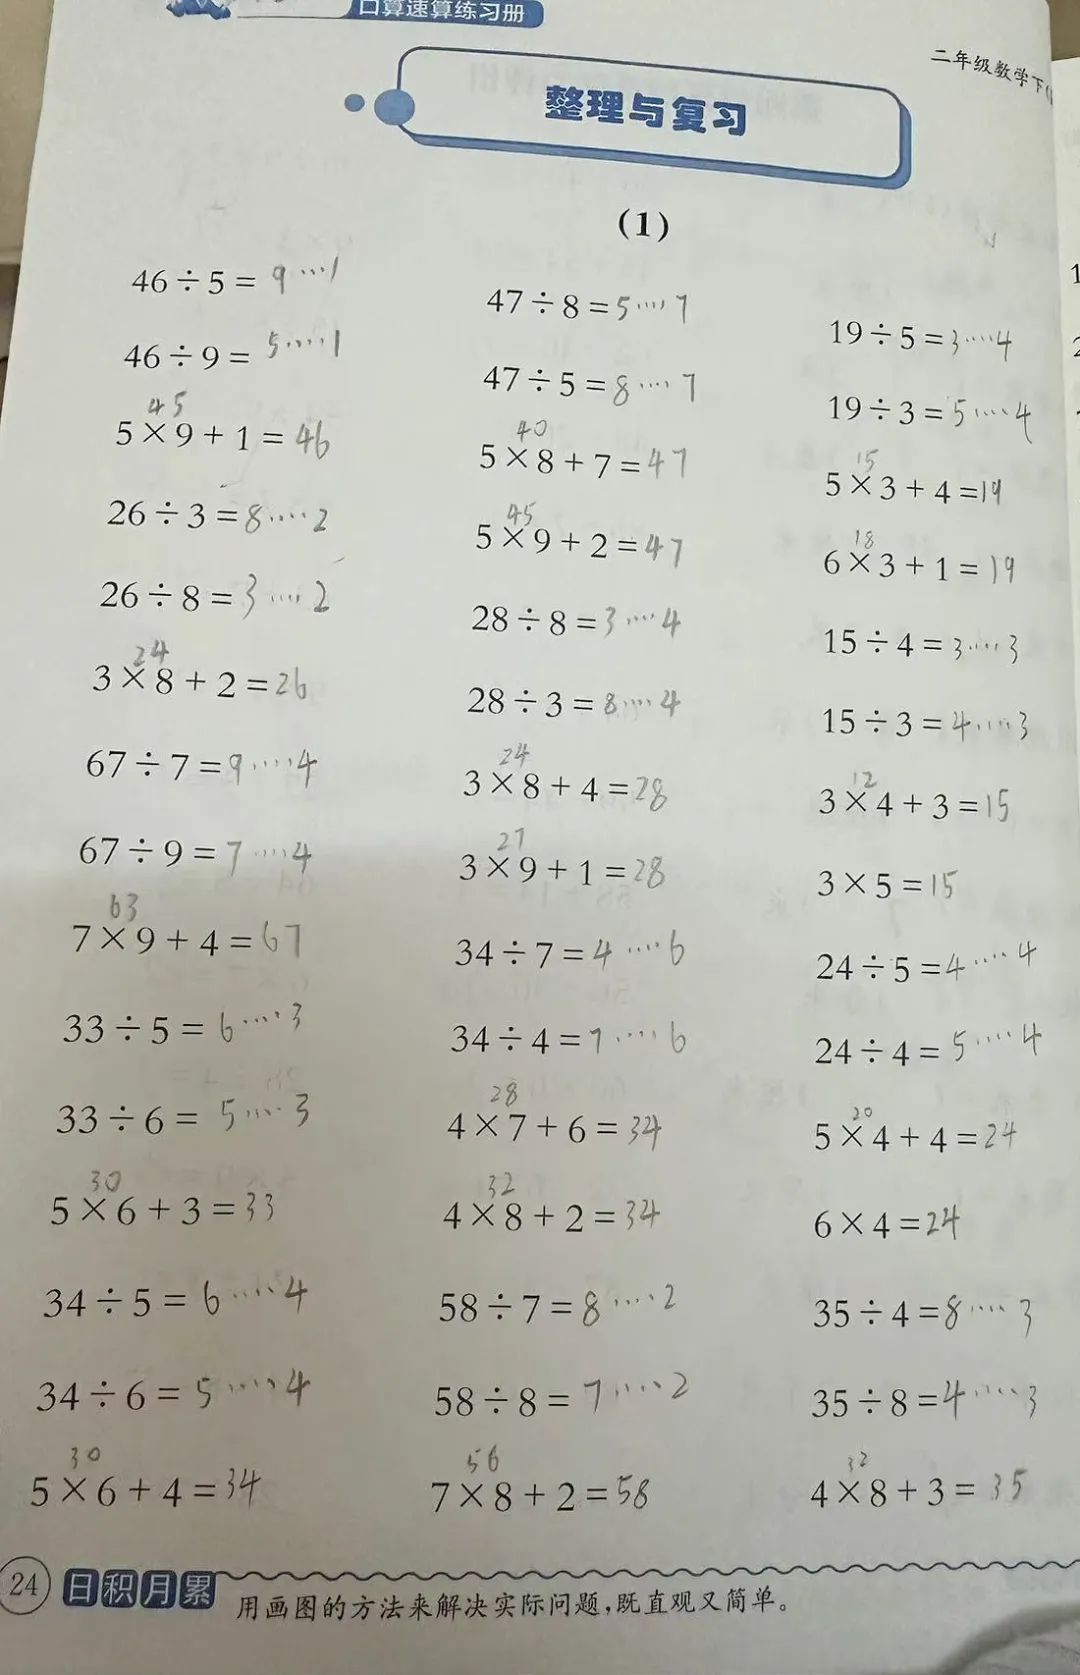 口算速算练习册
二年级数学下
整理与复习
(1)
46÷5=9…1
46÷9=5…1
45
5×9+1=46
26÷3=8…2
26÷8=3…2
24
3×8+2=26
67÷7=9…4
67÷9=7…4
63
7×9+4=67
33÷5=6…3
33÷6=5…3
30
5×6+3=33
34÷5=6…4
34÷6=5…4
30
5×6+4=34
47÷8=5…7
47÷5=8…7
40
5×8+7=47
45
5×9+2=47
28÷8=3…4
28÷3=8…4
24
3×8+4=28
27
3×9+1=28
34÷7=4…6
34÷4=7…6
28
4×7+6=34
32
4×8+2=34
58÷7=8…2
58÷8=7…2
56
7×8+2=58
19÷5=3…4
19÷3=5…4
15
5×3+4=19
18
6×3+1=19
15÷4=3…3
15÷3=4…3
12
3×4+3=15
3×5=15
24÷5=4…4
24÷4=5…4
20
5×4+4=24
6×4=24
35÷4=8…3
35÷8=4…3
32
4×8+3=35
24 日积月累
用画图的方法来解决实际问题,既直观又简单。